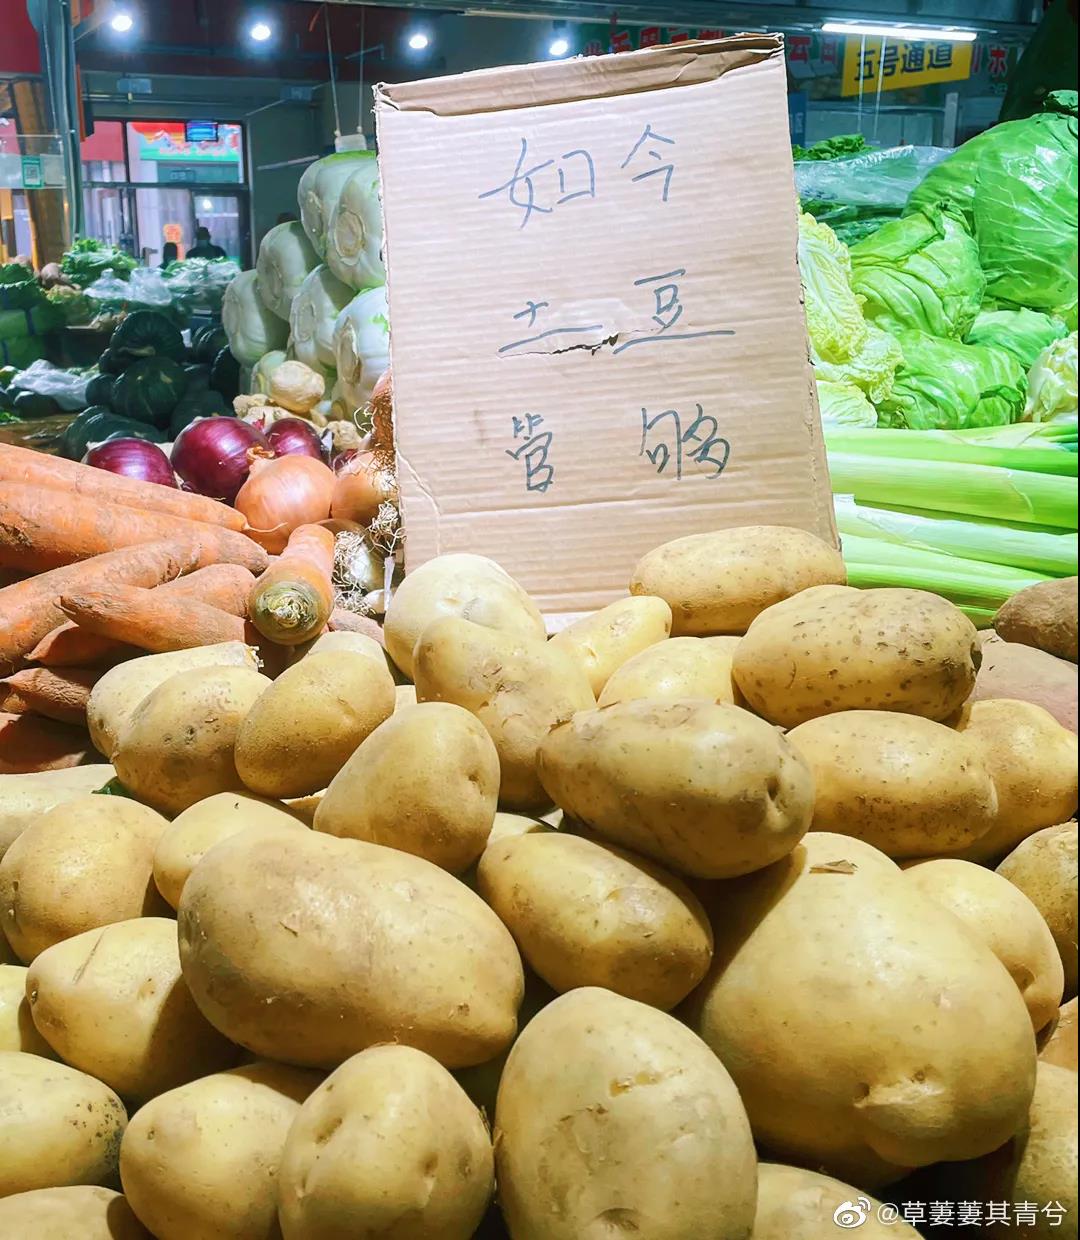 五号通道
如今
土豆
管够
@草萋萋其青兮